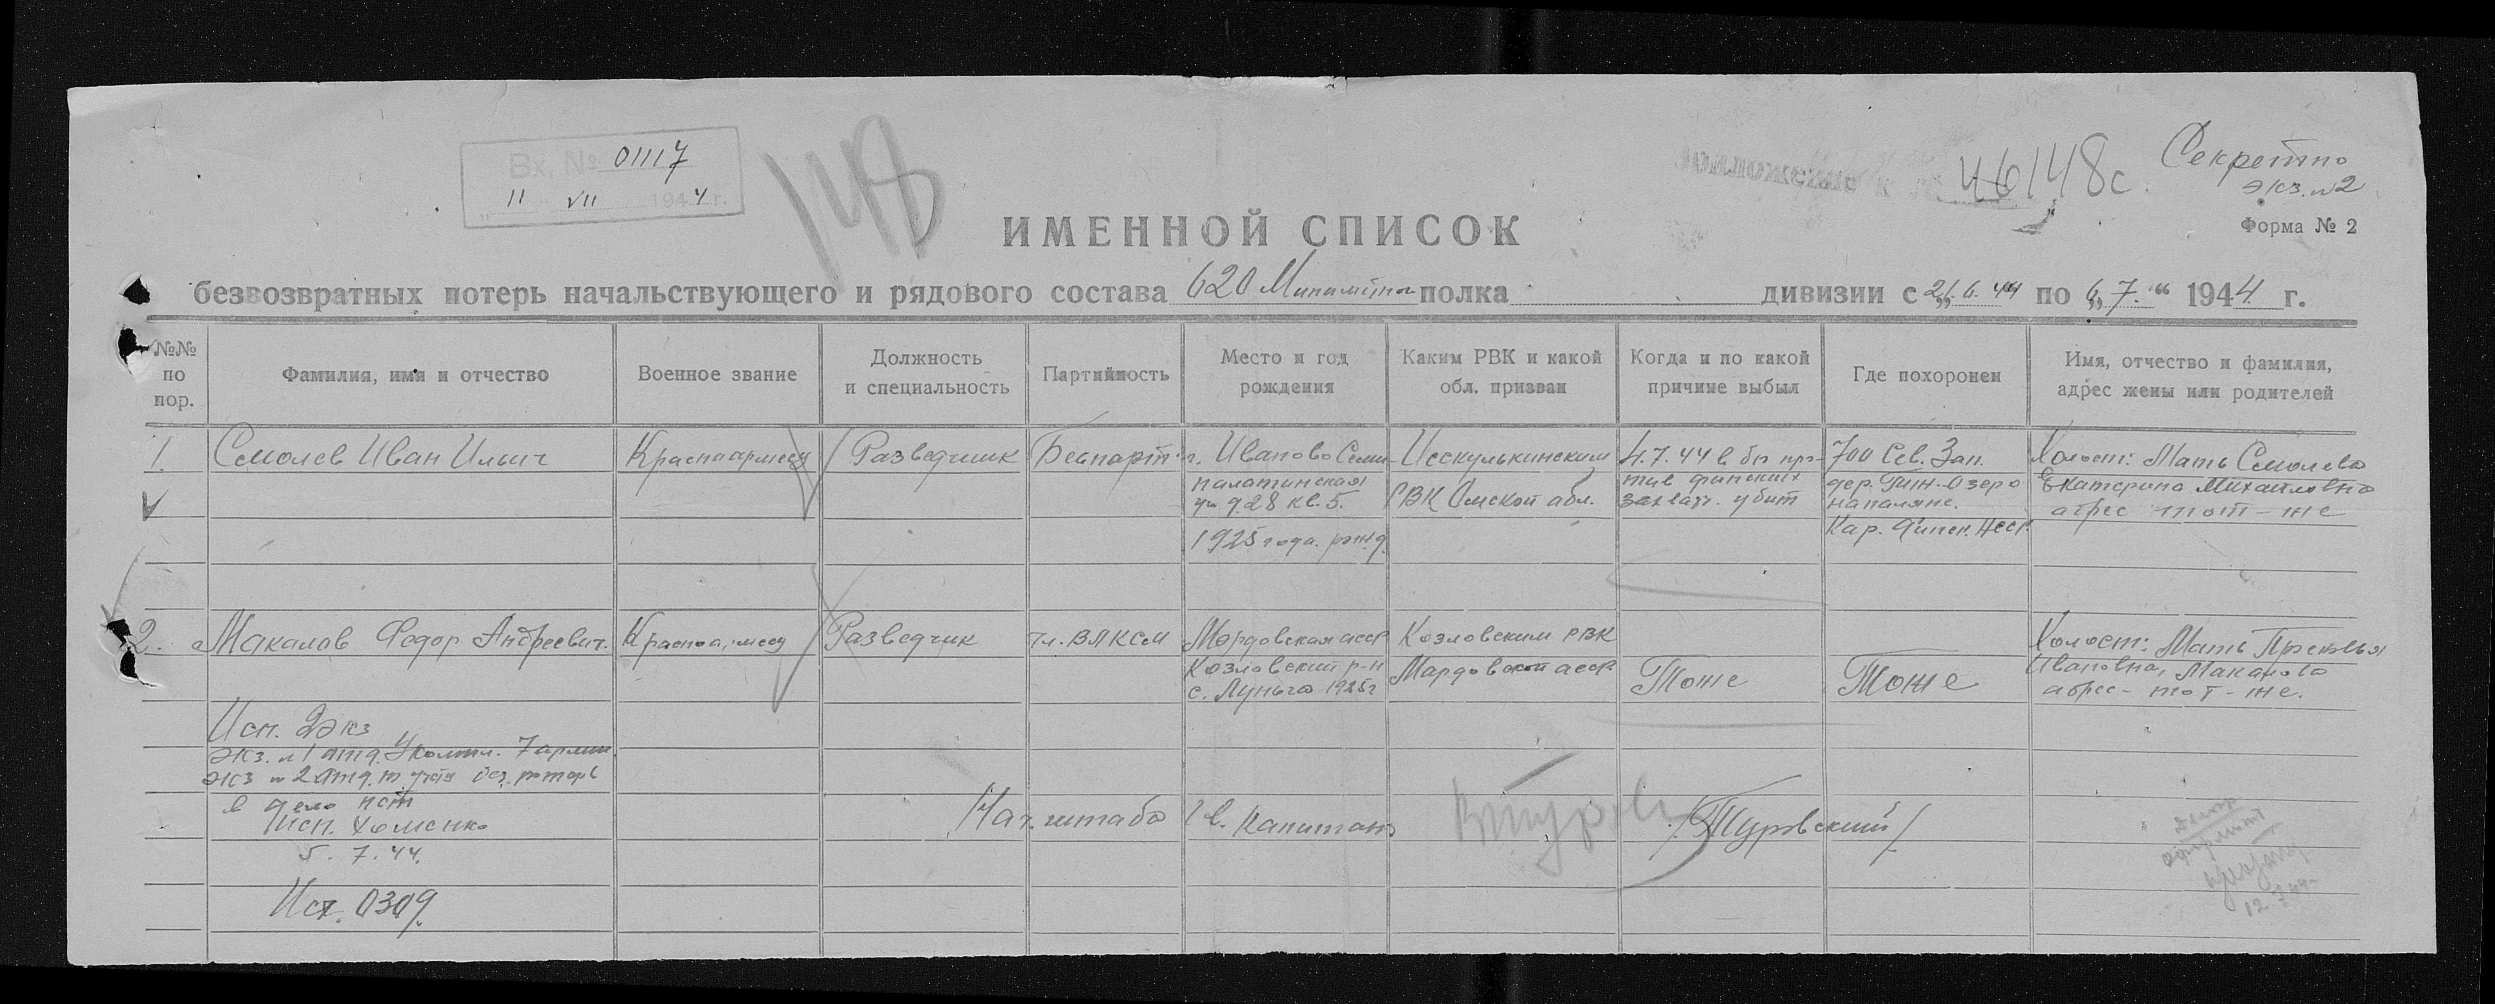 Вх. № 01117
11 VII 1944 г.
148
46148с
Секретно
экз. №2
Форма № 2
ИМЕННОЙ СПИСОК
безвозвратных потерь начальствующего и рядового состава 620 полка дивизии с 21.6.44 по „6„ 7. “ 1944 г.
№№ по пор.
Фамилия, имя и отчество
Военное звание
Должность и специальность
Партийность
Место и год рождения
Каким РВК и какой обл. призван
Когда и по какой причине выбыл
Где похоронен
Имя, отчество и фамилия, адрес жены или родителей
1.
Смолев Иван Ильич
Красноармеец
Разведчик
Беспарт.
г. Иваново Семи
палатинская
ул д. 28 кв. 5.
1925 года. рожд.
РВК Омской абл.
4.7.44 в бою про-
тив финских
захват. убит
700 Сев. Зап.
дер. озеро
на поляне.
Кар. Финск. ССР.
Холост: Мать Смолева
Екатерина Михайловна
адрес тот-же
2.
Макалов Федор Андреевич.
Красноармеец
Разведчик
чл. ВЛКСМ
Мордовская асср
Козловский р-н
с. Луньга 1925г
Козловским РВК
Мардовской асср
Тоже
Тоже
Холост: Мать
Ивановна, Макалова
адрес-тот-же.
Исп. 2 экз
экз. №1 7 армии
экз №2 отд. по учету без. потерь
в дело нст
Исп. Хоменко
5.7.44.
Исх. 0309.
Нач. штаба гв. капитан
/Туровский/
12.7.44